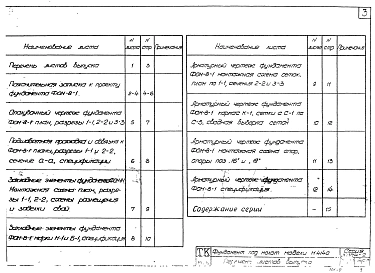 3
Наименование листа
N листа
N стр
Примечания
Перечень листов выпуска
1
3
Пояснительная записка к проекту
фундамента ФОН-8-1.
2-4
4-6
Опалубочный чертеж фундамента
ФОН-8-1 план, разрезы 1-1, 2-2 и 3-3
5
7
ФОН-8-1 план, разрезы 1-1 и 2-2,
сечение а-а, спецификации
6
8
Закладные элементы фундамента
Монтажная схема план, разре-
зы 1-1, 2-2, схемы размещения
и забивки свай
7
9
Закладные элементы фундамента
ФОН-8-1 марки
спецификация
8
10
Наименование листа
N листа
N стр
Примечания
Арматурный чертеж фундамента
ФОН-8-1 монтажная схема сеток,
план по 1-1, сечения 2-2 и 3-3
9
11
Арматурный чертеж фундамента
ФОН-8-1 каркас К-1, сетки с С-1 по
С-3, сводная выборка сеток
10
12
Арматурный чертеж фундамента
ФОН-8-1 монтажная схема
11
13
Арматурный чертеж фундамента
ФОН-8-1 спецификация
12
14
Содержание серии
–
15
ТК
Фундамент под копот модели
Перечень листов выпуска